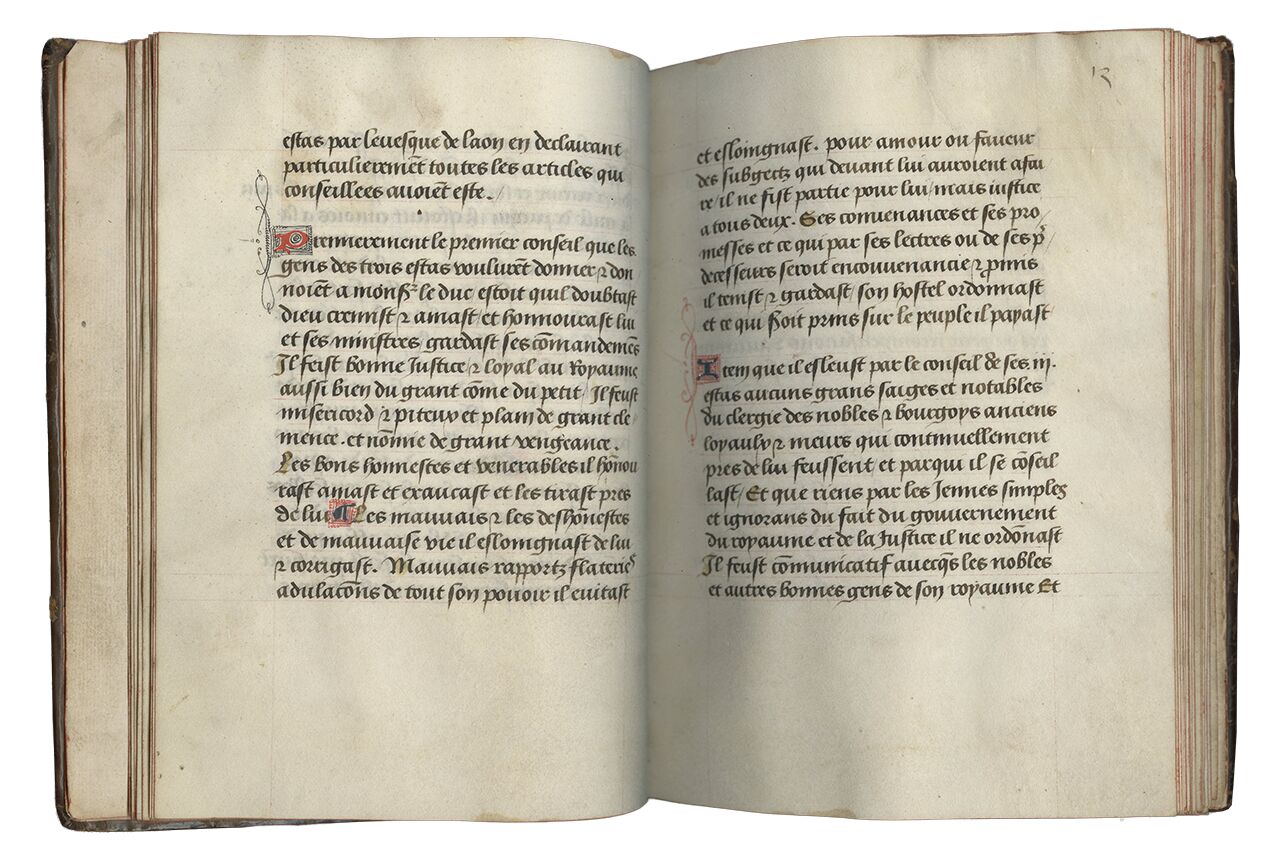 estas par levesque de laon en declairant
particulierem̄t toutes les articles qui
conseillees avoiēt este.
Premierement le premier conseil que les
gens des trois estas voulurēt donner ⁊ don
noiēt a monsr̄ le duc / estoit quil doubtast
dieu cremist ⁊ amast / et honnourast lui
et ses ministres / gardast ses cōmandemēs
Il feist bonne Justice ⁊ loyal au Royaume
aussi bien du grant cōme du petit / Il feust
misericord / ⁊ piteux et plain de grant cle
mence . et nōmie de grant vengeance .
Les bons honnestes et venerables il hōnou
rast amast et exaucast et les tirast pres
de lui Les mauvais ⁊ les deshōnestes
et de mauvaise vie il esloingnast de lui
⁊ corrigast. Mauvais rapportz flaterieˢ
adulacōns de tout son povoir il evitast
13
et esloingnast. pour amour ou faveur
des subgectz qui devant lui auroient afai
re / il ne fist partie pour lui / mais iustice
a tous deux. Ses convenances et ses pro
messes et ce qui par ses lectres ou de ses p̄
decesseurs seroit encouvenancie ⁊ p̄mis
il tenist ⁊ gardast / son hostel ordonnast
et ce qui Soit prins sur le peuple il payast
Item que il esleust par le conseil de ses iij.
estas aucuns grans saiges et notables
du clergie des nobles ⁊ bourgoys anciens
loyaulx ⁊ meurs qui continuellement
pres de lui feussent / et par qui il se cōseil
last / Et que riens par les Jennes simples
et ignorans du fait du gouvernement
du royaume et de la Justice il ne ordōnast
Il feust cōmunicatif avecq̄s les nobles
et autres bonnes gens de son royaume Et